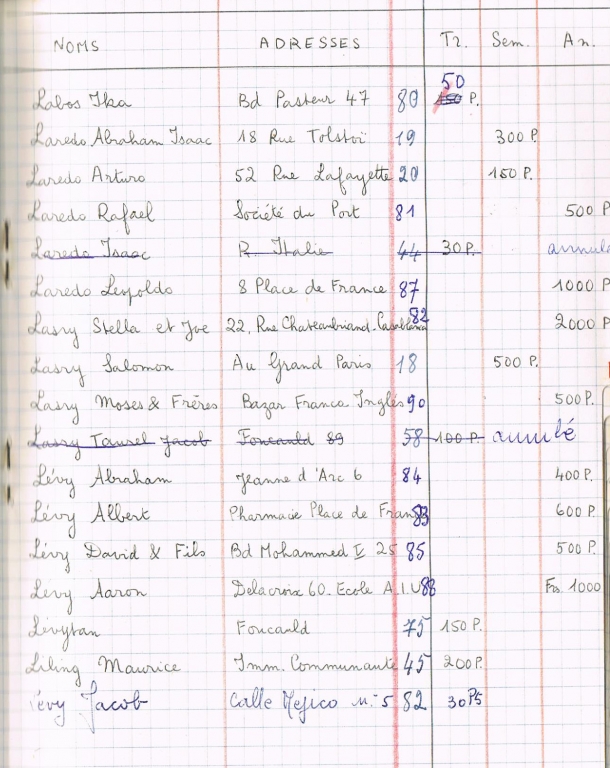 NOMS ADRESSES Tr. Sem. An.
Labos Ika Bd Pasteur 47 80 50 150 P.
Laredo Abraham Isaac 18 Rue Tolstoï 19 300 P.
Laredo Arturo 52 Rue Lafayette 20 150 P.
Laredo Rafael Société du Port 81 500 P
Laredo Isaac R. Italie 44 30 P. annulé
Laredo Leopoldo 8 Place de France 87 1000 P
Lasry Stella et Joe 22, Rue Chateaubriand. Casablanca 82 2000 P
Lasry Salomon Au Grand Paris 18 500 P.
Lasry Moses & Frères Bazar Franco Inglés 90 500 P.
Lasry Jacob Foucauld 89 58 100 P. annulé
Lévy Abraham Jeanne d'Arc 6 84 400 P.
Lévy Albert Pharmacie Place de France 83 600 P.
Lévy David & Fils Bd Mohammed V 25 85 500 P.
Lévy Aaron Delacroix 60. Ecole A.I.U 88 Frs. 1000
Lévytan Foucauld 75 150 P.
Liling Maurice Imm. Communauté 45 200 P.
Lévy Jacob Calle Mejico n.º 5 82 30 Pts